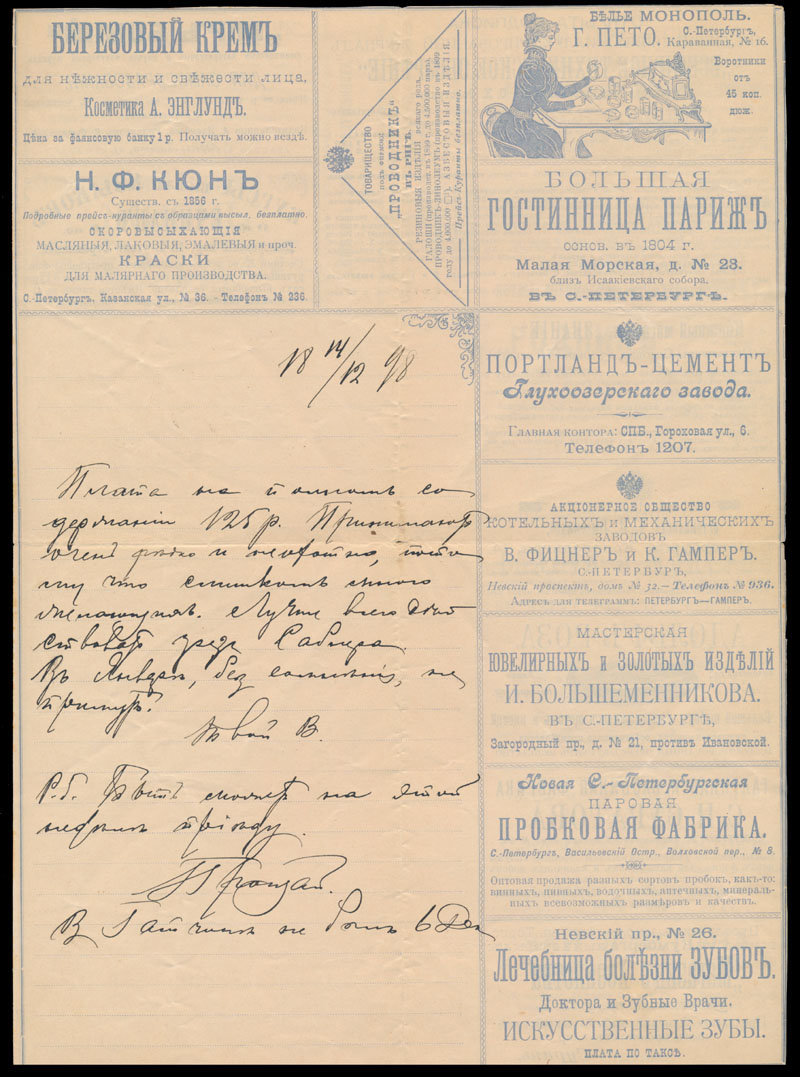 БЕРЕЗОВЫЙ КРЕМЪ
ДЛЯ НѢЖНОСТИ И СВѢЖЕСТИ ЛИЦА,
Косметика А. ЭНГЛУНДЪ.
Цѣна за фаянсовую банку 1 р. Получать можно вездѣ.
Н. Ф. КЮНЪ
Существ. съ 1856 г.
Подробные прейсъ-куранты съ образцами высыл. безплатно.
СКОРОВЫСЫХАЮЩІЯ
МАСЛЯНЫЯ, ЛАКОВЫЯ, ЭМАЛЕВЫЯ и проч.
КРАСКИ
ДЛЯ МАЛЯРНАГО ПРОИЗВОДСТВА.
С.-Петербургъ, Казанская ул., № 36. - Телефонъ № 236.
ТОВАРИЩЕСТВО
подъ фирмою
„ПРОВОДНИКЪ“
ВЪ РИГѢ.
РЕЗИНОВЫЯ ИЗДѢЛІЯ всякаго рода.
ПРОВОДНИКЪ-ЛИНОЛЕУМЪ
АЗБЕСТОВЫЯ ИЗДѢЛІЯ.
Прейсъ-Куранты безплатно.
БѢЛЬЕ МОНОПОЛЬ.
Г. ПЕТО.
С.-Петербургъ,
Караванная, № 16.
Воротники
отъ
45 коп.
дюж.
БОЛЬШАЯ
ГОСТИННИЦА ПАРИЖЪ
основ. въ 1804 г.
Малая Морская, д. № 23.
близъ Исаакіевскаго собора.
ВЪ С.-ПЕТЕРБУРГѢ.
ПОРТЛАНДЪ-ЦЕМЕНТЪ
Глухоозерскаго завода.
Главная контора: СПБ., Гороховая ул., 6.
Телефонъ 1207.
АКЦІОНЕРНОЕ ОБЩЕСТВО
КОТЕЛЬНЫХЪ и МЕХАНИЧЕСКИХЪ
ЗАВОДОВЪ
В. ФИЦНЕРЪ и К. ГАМПЕРЪ.
С.-ПЕТЕРБУРГЪ,
Невскій проспектъ, домъ № 32.—Телефонъ № 936.
Адресъ для телеграммъ: ПЕТЕРБУРГЪ—ГАМПЕРЪ.
МАСТЕРСКАЯ
ЮВЕЛИРНЫХЪ и ЗОЛОТЫХЪ ИЗДѢЛІЙ
И. БОЛЬШЕМЕННИКОВА.
ВЪ С.-ПЕТЕРБУРГѢ,
Загородный пр., д. № 21, противъ Ивановской.
Новая С.-Петербургская
ПАРОВАЯ
ПРОБКОВАЯ ФАБРИКА.
С.-Петербургъ, Васильевскій Остр., Волховской пер., № 8.
Оптовая продажа разныхъ сортовъ пробокъ, какъ-то:
винныхъ, пивныхъ, водочныхъ, аптечныхъ, минераль-
ныхъ всевозможныхъ размѣровъ и качествъ.
Невскій пр., № 26.
Лечебница болѣзни ЗУБОВЪ.
Доктора и Зубные Врачи.
ИСКУССТВЕННЫЕ ЗУБЫ.
ПЛАТА ПО ТАКСѢ.
18 14/12 98
Плата на полномъ со
держаніи 125 р. Принимаютъ
очень рѣдко и неохотно, пото
му что слишкомъ много
желающихъ. Лучше всего дѣй
ствовать чрезъ Саблера.
Въ Январѣ, безъ сомнѣнія, не
примутъ.
Твой В.
P.S. Быть можетъ на этой
недѣлѣ пріѣду.
Прощай.
В Гатчинѣ не былъ 6 Дек